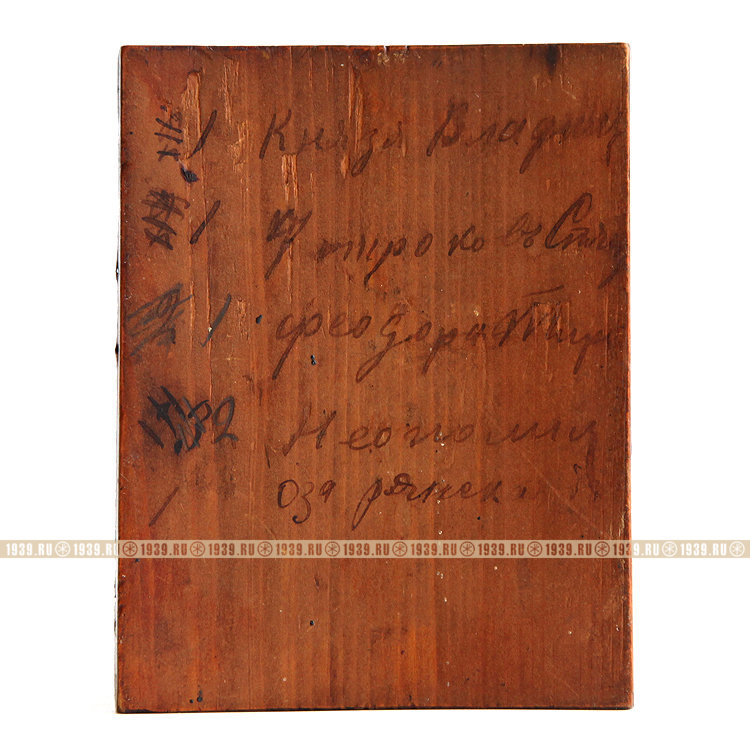 1 Князя Владим
1 7 отроковъ Спя
1 Феодора Тир
32 Неопалим
1 Озарянск
1939.RU 1939.RU 1939.RU 1939.RU 1939.RU 1939.RU 1939.RU 1939.RU 1939.RU 1939.RU 1939.RU